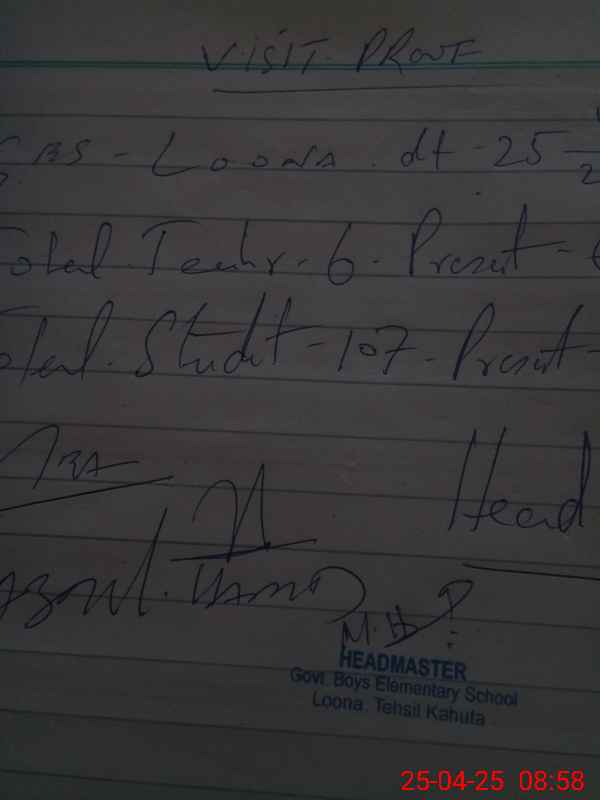 VISIT PROUF
- Loona. dt - 25
Total Teachr - 6 - Present -
Total Studet - 107 - Present -
Head
M.H
HEADMASTER
Govt. Boys Elementary School
Loona. Tehsil Kahuta
25-04-25 08:58